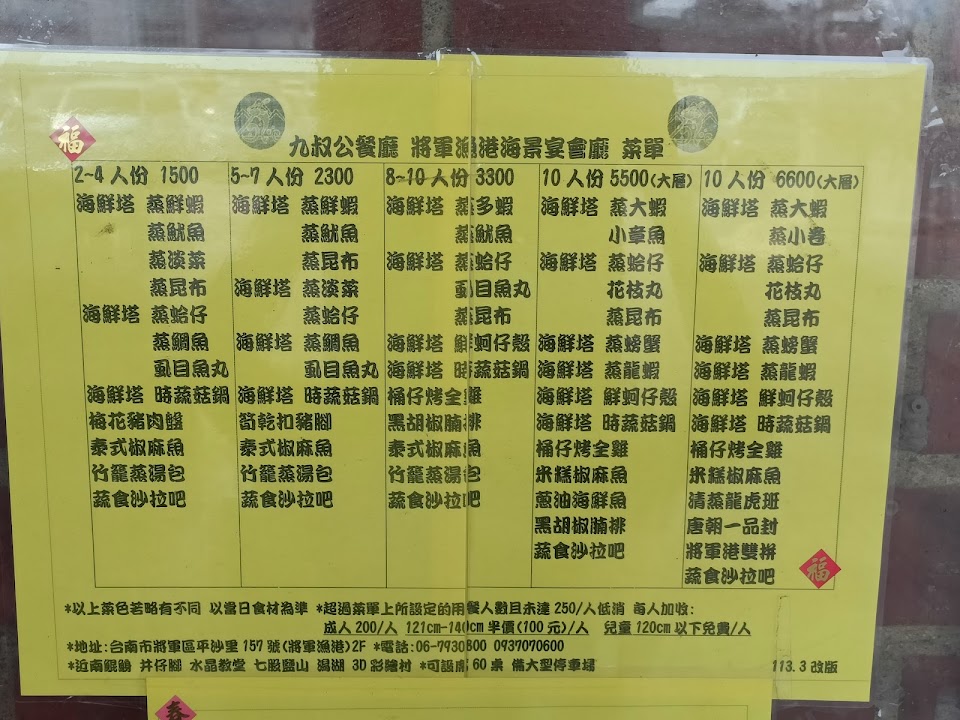 福
九叔公餐廳 將軍漁港海景宴會廳 菜單
2~4 人份 1500
海鮮塔 蒸鮮蝦
蒸魷魚
蒸淡菜
蒸昆布
海鮮塔 蒸蛤仔
蒸鯛魚
虱目魚丸
海鮮塔 時蔬菇鍋
梅花豬肉盤
泰式椒麻魚
竹籠蒸湯包
蔬食沙拉吧
5~7 人份 2300
海鮮塔 蒸鮮蝦
蒸魷魚
蒸昆布
海鮮塔 蒸淡菜
蒸蛤仔
海鮮塔 蒸鯛魚
虱目魚丸
海鮮塔 時蔬菇鍋
筍乾扣豬腳
泰式椒麻魚
竹籠蒸湯包
蔬食沙拉吧
8~10 人份 3300
海鮮塔 蒸多蝦
蒸魷魚
海鮮塔 蒸蛤仔
虱目魚丸
蒸昆布
海鮮塔 鮮蚵仔殼
海鮮塔 時蔬菇鍋
桶仔烤全雞
黑胡椒腩排
泰式椒麻魚
竹籠蒸湯包
蔬食沙拉吧
10 人份 5500(大層)
海鮮塔 蒸大蝦
小章魚
海鮮塔 蒸蛤仔
花枝丸
蒸昆布
海鮮塔 蒸螃蟹
海鮮塔 蒸龍蝦
海鮮塔 鮮蚵仔殼
海鮮塔 時蔬菇鍋
桶仔烤全雞
米糕椒麻魚
蔥油海鮮魚
黑胡椒腩排
蔬食沙拉吧
10 人份 6600(大層)
海鮮塔 蒸大蝦
蒸小卷
海鮮塔 蒸蛤仔
花枝丸
蒸昆布
海鮮塔 蒸螃蟹
海鮮塔 蒸龍蝦
海鮮塔 鮮蚵仔殼
海鮮塔 時蔬菇鍋
桶仔烤全雞
米糕椒麻魚
清蒸龍虎班
唐朝一品封
將軍港雙拼
蔬食沙拉吧
福
*以上菜色若略有不同 以當日食材為準 *超過菜單上所設定的用餐人數且未達 250/人低消 每人加收:
成人 200/人 121cm-140cm 半價(100 元)/人 兒童 120cm 以下免費/人
*地址:台南市將軍區平沙里 157 號(將軍漁港)2F *電話:06-7930800 0937070600
*近南鯤鯓 井仔腳 水晶教堂 七股鹽山 潟湖 3D 彩繪村 *可設席 60 桌 備大型停車場
113.3 改版
春